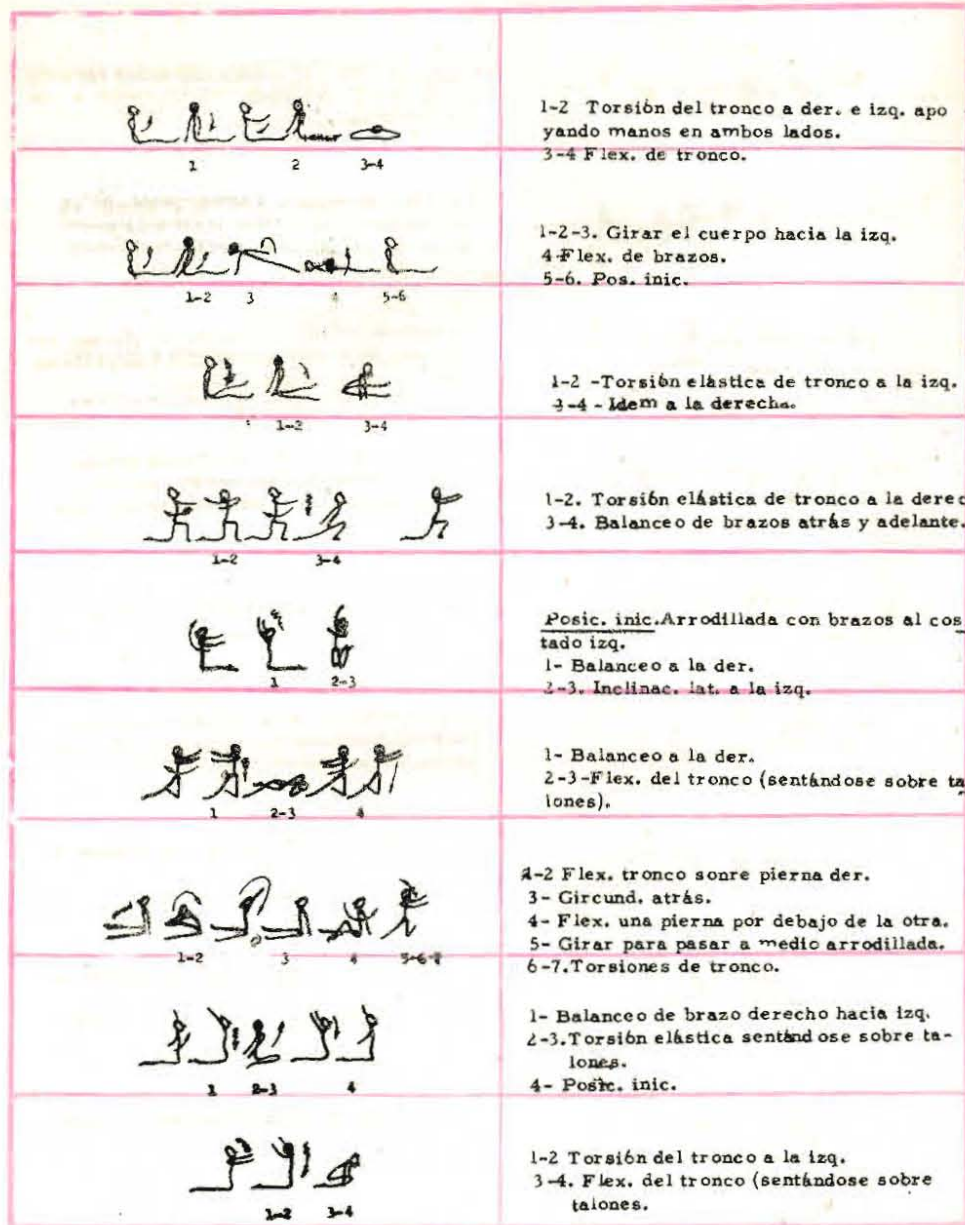 1-2 Torsión del tronco a der. e izq. apo
yando manos en ambos lados.
3-4 Flex. de tronco.
1 2 3-4
1-2-3. Girar el cuerpo hacia la izq.
4-Flex. de brazos.
5-6. Pos. inic.
1-2 3 4 5-6
1-2 -Torsión elástica de tronco a la izq.
3-4 - Idem a la derecha.
1-2 3-4
1-2. Torsión elástica de tronco a la derec
3-4. Balanceo de brazos atrás y adelante.
1-2 3-4
Posic. inic.Arrodillada con brazos al cos
tado izq.
1- Balanceo a la der.
2-3. Inclinac. lat. a la izq.
1 2-3
1- Balanceo a la der.
2-3-Flex. del tronco (sentándose sobre ta
lones).
1 2-3 4
1-2 Flex. tronco sonre pierna der.
3- Gircund. atrás.
4- Flex. una pierna por debajo de la otra.
5- Girar para pasar a medio arrodillada.
6-7.Torsiones de tronco.
1-2 3 4 5-6-7
1- Balanceo de brazo derecho hacia izq.
2-3.Torsión elástica sentándose sobre ta-
lones.
4- Posic. inic.
1 2-3 4
1-2 Torsión del tronco a la izq.
3-4. Flex. del tronco (sentándose sobre
talones.
1-2 3-4